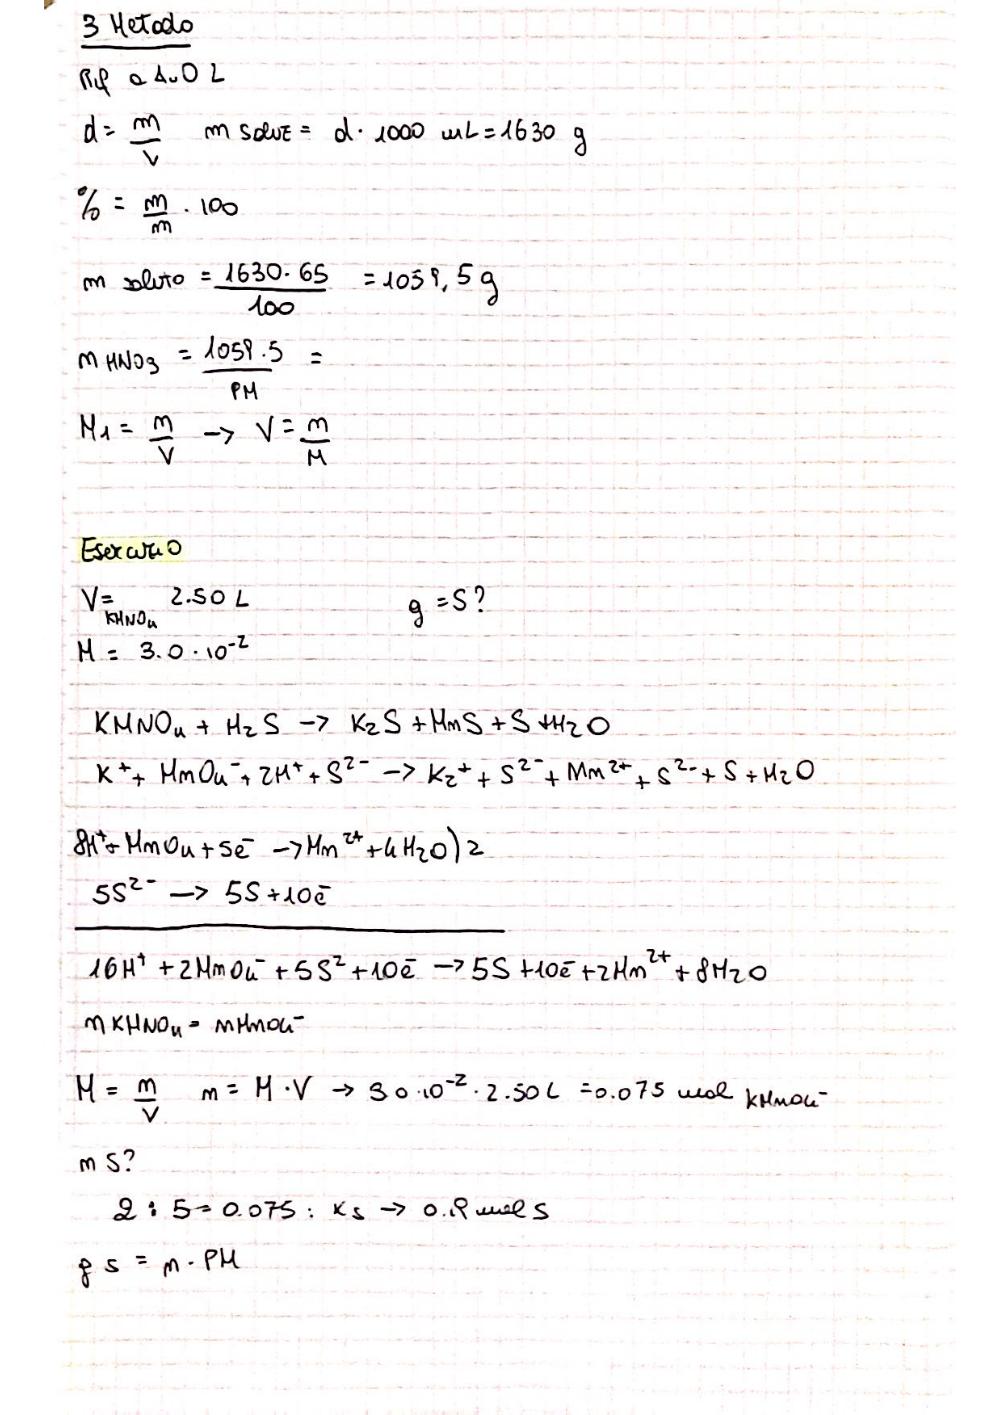 3 Metodo
Rif a 1.0 L
d = m/V   m SOLUZ = d · 1000 mL = 1630 g
% = m/m · 100
m soluto = 1630 · 65 / 100 = 1059,5 g
m HNO3 = 1059.5 / PM =
M1 = m/V -> V = m/M
Esercizio
V KMNO4 = 2.50 L   g = S?
M = 3.0 · 10^-2
KMNO4 + H2S -> K2S + MnS + S + H2O
K+ + MnO4- + 2H+ + S2- -> K2+ + S2- + Mn2+ + S2- + S + H2O
8H+ + MnO4 + 5e- -> Mn2+ + 4H2O) 2
5S2- -> 5S + 10e-
16H+ + 2MnO4- + 5S2 + 10e- -> 5S + 10e- + 2Mn2+ + 8H2O
n KMNO4 = n MnO4-
M = n/V   n = M · V -> 3 0 · 10^-2 · 2.50 L = 0.075 mol KMnO4-
n S?
2 : 5 = 0.075 : xs -> mol S
g s = n · PM